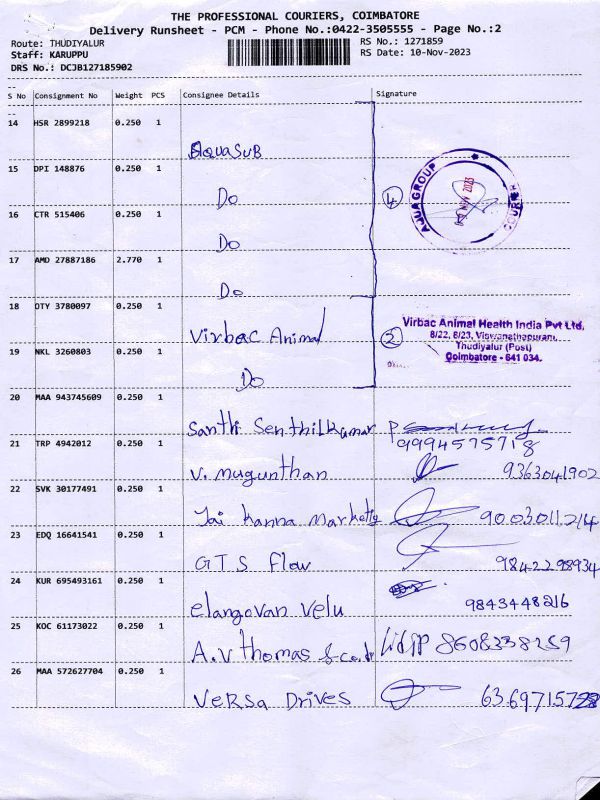 THE PROFESSIONAL COURIERS, COIMBATORE
Delivery Runsheet - PCM - Phone No.:0422-3505555 - Page No.:2
Route: THUDIYALUR
Staff: KARUPPU
DRS No.: DCJB127185902
RS No.: 1271859
RS Date: 10-Nov-2023
S No Consignment No Weight PCS Consignee Details Signature
14 HSR 2899218 0.250 1
AquaSuB
15 DPI 148876 0.250 1
Do
16 CTR 515406 0.250 1
Do
17 AMD 27887186 2.770 1
Do
4
AJUA GROUP
NOV 2023
18 OTY 3780097 0.250 1
Virbac Animal
19 NKL 3260803 0.250 1
Do
2
Virbac Animal Health India Pvt Ltd.
8/22, 8/23, Viswanathapuram,
Thudiyalur (Post)
Coimbatore - 641 034.
20 MAA 943745609 0.250 1
Santhi Senthilkumar
9994575718
21 TRP 4942012 0.250 1
V. mugunthan 9363041902
22 SVK 30177491 0.250 1
Jai Kanna Marketg 9003011214
23 EDQ 16641541 0.250 1
GTS Flow 9842298934
24 KUR 695493161 0.250 1
elangovan velu 9843448216
25 KOC 61173022 0.250 1
A.V Thomas & co. 8608338259
26 MAA 572627704 0.250 1
Versa Drives